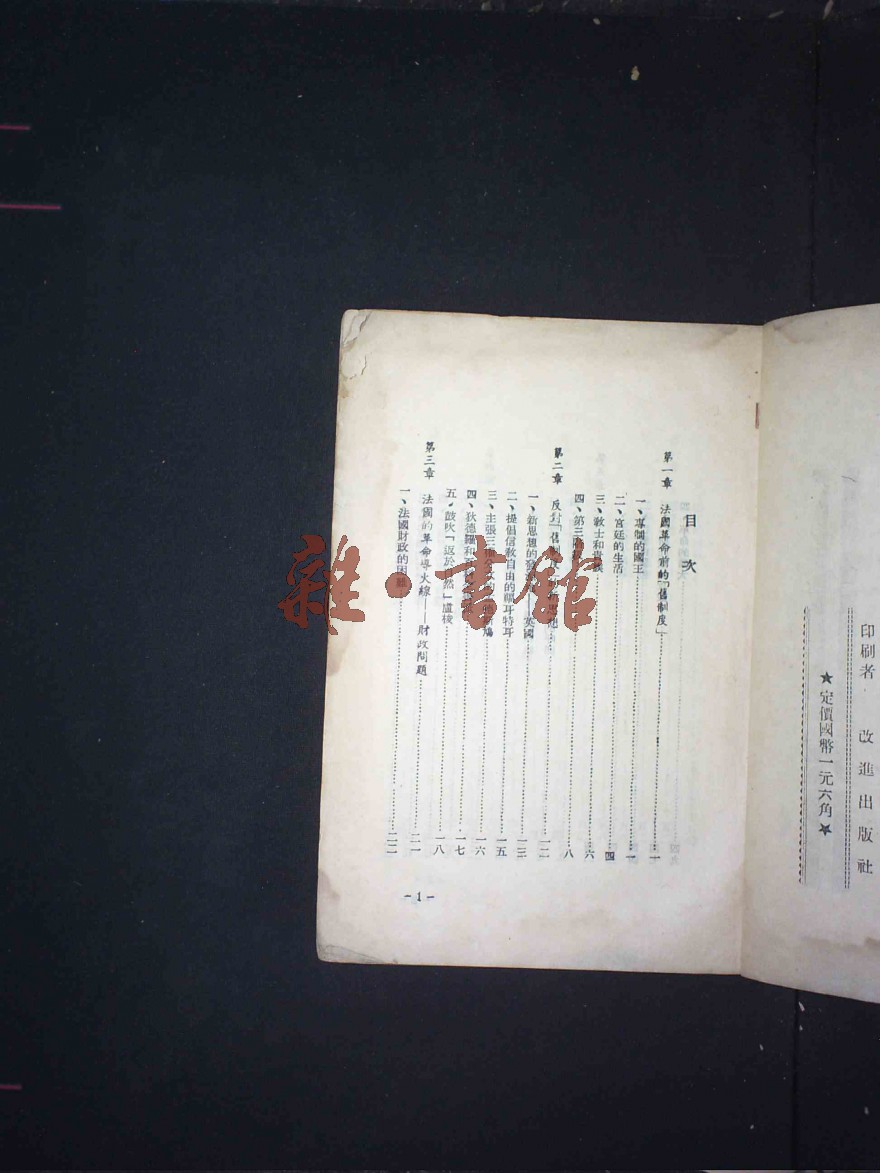 印刷者 改進出版社
★定價國幣一元六角★
目次
第一章 法國革命前的「舊制度」……一
一、專制的國王……一
二、宮廷的生活……四
三、教士和……六
四、第三……八
第二章 反對「舊制度」的……思想……一二
一、新思想的發……——英國……一三
二、提倡信教自由的……耳特耳……一五
三、主張三權分立的……一六
四、狄德羅和……一七
五、鼓吹「返於自然」盧梭……一八
第三章 法國的革命導火線——財政問題……二一
一、法國財政的困難……二二
-1-
雜·書館